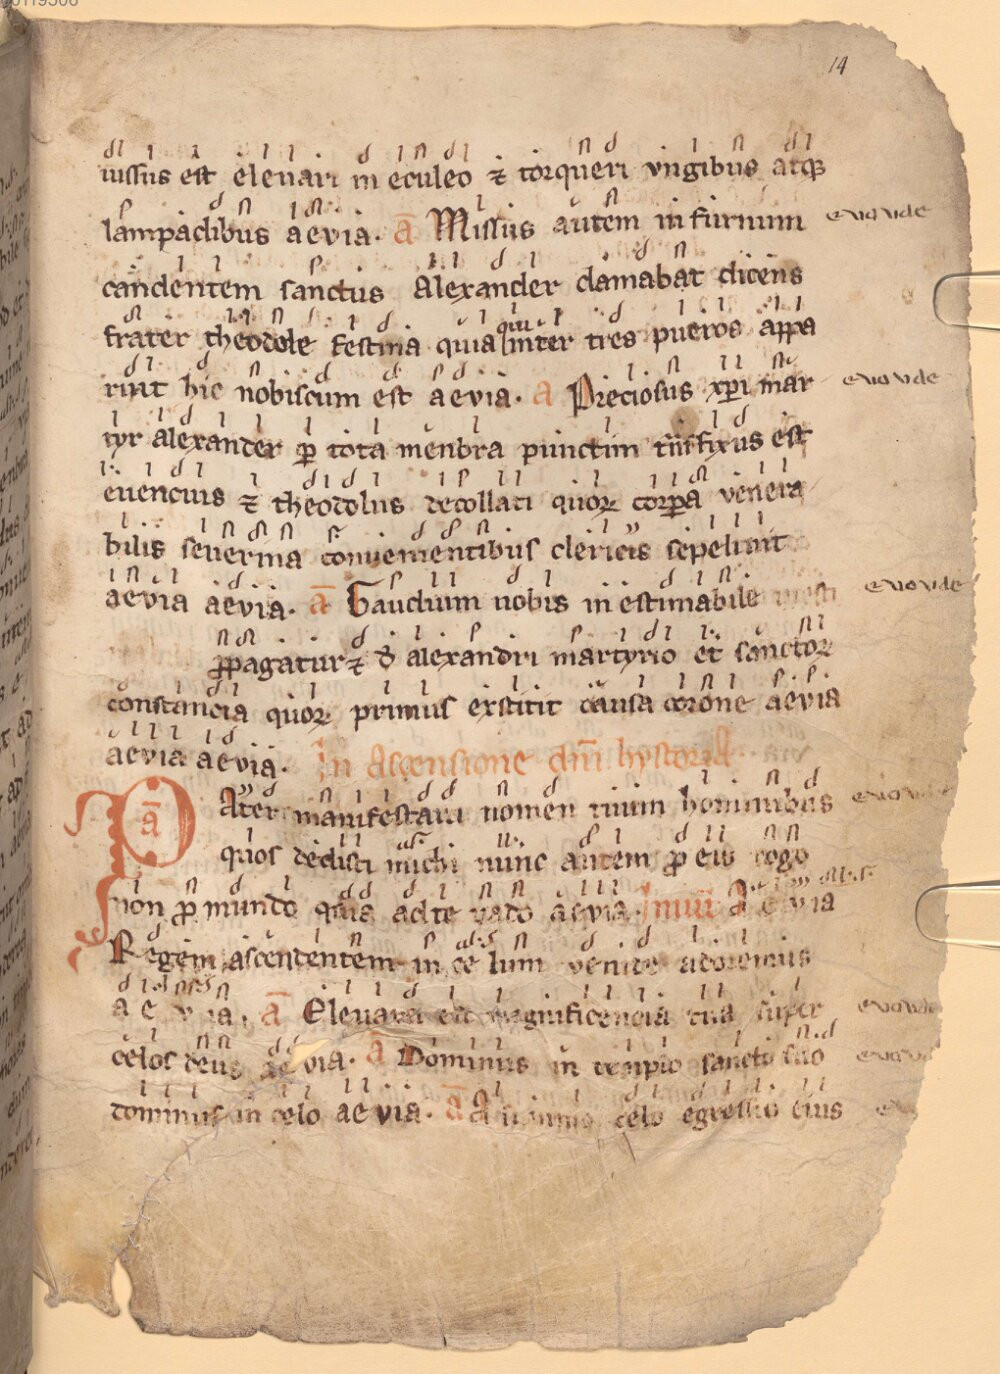 14
iussus est eleuari in eculeo ⁊ torqueri vngibus atqꝫ
lampadibus aevia. ā Missus autem in furnum evovae
candentem sanctus Alexander clamabat dicens
frater theodole festina quia qui inter tres pueros appa
ruit hic nobiscum est aevia. a Preciosus xp̄i mar evovae
tyr alexander ꝑ tota menbra punctim est
euencius ⁊ theodolus decollati quoꝝ corꝑa venera
bilis seuerina conuenientibus clericis sepeliuit
aevia aevia. ā Gaudium nobis inestimabile evovae
ꝓpagatur ⁊ đ alexandri martyrio et sanctoꝝ
constancia quoꝝ primus exstitit causa corone aevia
aevia aevia. In ascensione dn̄i hystoria.
ā Pater manifestaui nomen tuum hominibus evovae
quos dedisti michi nunc autem ꝓ eis rogo
non ꝓ mundo quia ad te vado aevia. Inuit̄ Aevia
Regem ascendentem in celum venite adoremus
aevia. ā Eleuata est magnificencia tua super evovae
celos deus aevia. a Dominus in templo sancto suo
dominus in celo aevia. ā A summo celo egressio eius